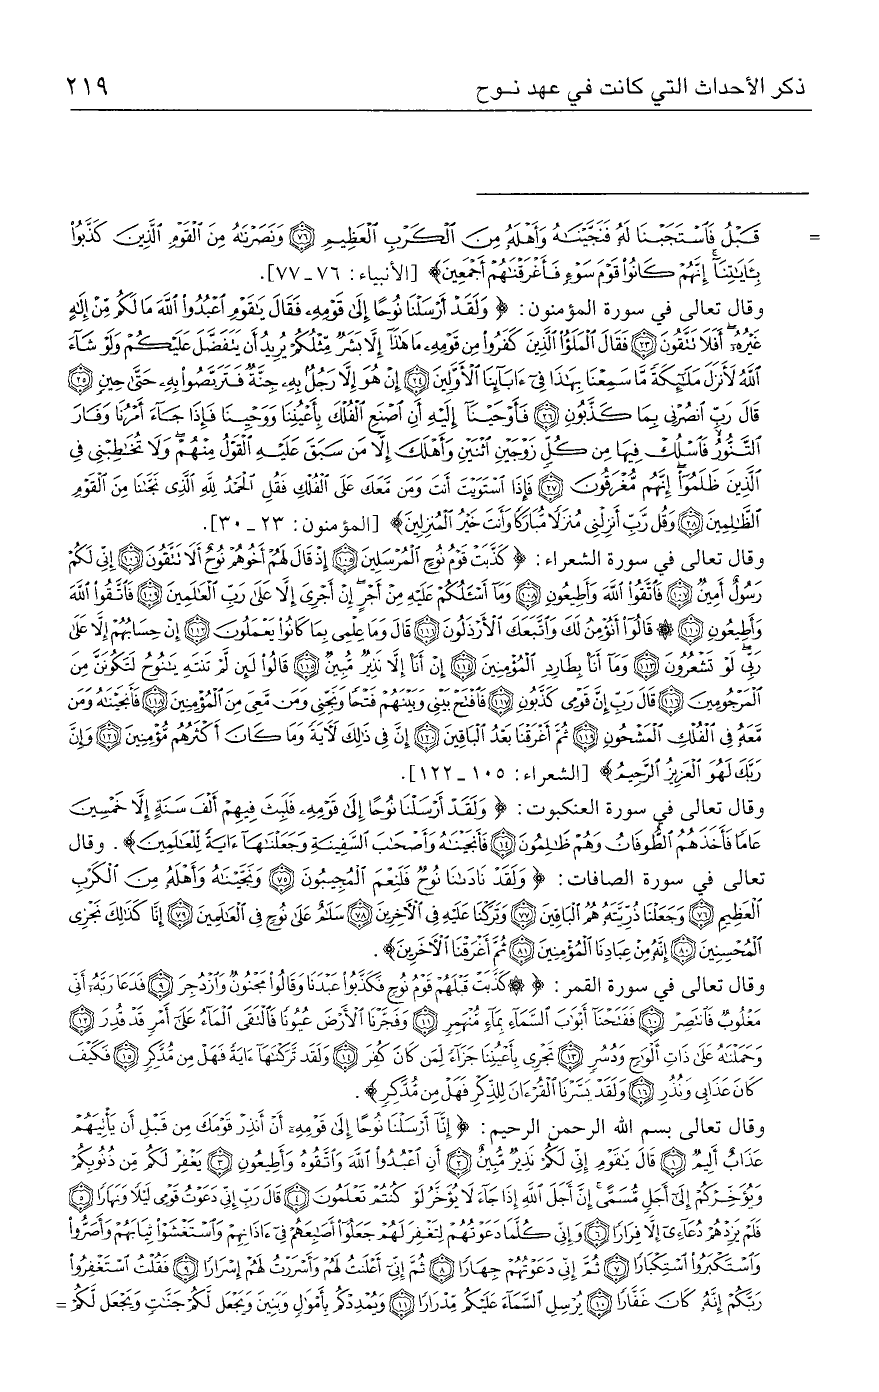 ذكر الأحداث التي كانت في عهد نــوح ٢١٩
= قَبْلُ فَاسْتَجَبْنَا لَهُ فَنَجَّيْنَاهُ وَأَهْلَهُ مِنَ الْكَرْبِ الْعَظِيمِ ﴿٧٦﴾ وَنَصَرْنَاهُ مِنَ الْقَوْمِ الَّذِينَ كَذَّبُوا
بِآيَاتِنَا إِنَّهُمْ كَانُوا قَوْمَ سَوْءٍ فَأَغْرَقْنَاهُمْ أَجْمَعِينَ﴾ [الأنبياء: ٧٦ ـ ٧٧].
وقال تعالى في سورة المؤمنون: ﴿ وَلَقَدْ أَرْسَلْنَا نُوحًا إِلَى قَوْمِهِ فَقَالَ يَا قَوْمِ اعْبُدُوا اللَّهَ مَا لَكُم مِّنْ إِلَهٍ
غَيْرُهُ أَفَلَا تَتَّقُونَ ﴿٢٣﴾ فَقَالَ الْمَلَؤُا الَّذِينَ كَفَرُوا مِن قَوْمِهِ مَا هَذَا إِلَّا بَشَرٌ مِّثْلُكُمْ يُرِيدُ أَن يَتَفَضَّلَ عَلَيْكُمْ وَلَوْ شَاءَ
اللَّهُ لَأَنزَلَ مَلَائِكَةً مَّا سَمِعْنَا بِهَذَا فِي آبَائِنَا الْأَوَّلِينَ ﴿٢٤﴾ إِنْ هُوَ إِلَّا رَجُلٌ بِهِ جِنَّةٌ فَتَرَبَّصُوا بِهِ حَتَّى حِينٍ ﴿٢٥﴾
قَالَ رَبِّ انصُرْنِي بِمَا كَذَّبُونِ ﴿٢٦﴾ فَأَوْحَيْنَا إِلَيْهِ أَنِ اصْنَعِ الْفُلْكَ بِأَعْيُنِنَا وَوَحْيِنَا فَإِذَا جَاءَ أَمْرُنَا وَفَارَ
التَّنُّورُ فَاسْلُكْ فِيهَا مِن كُلٍّ زَوْجَيْنِ اثْنَيْنِ وَأَهْلَكَ إِلَّا مَن سَبَقَ عَلَيْهِ الْقَوْلُ مِنْهُمْ وَلَا تُخَاطِبْنِي فِي
الَّذِينَ ظَلَمُوا إِنَّهُم مُّغْرَقُونَ ﴿٢٧﴾ فَإِذَا اسْتَوَيْتَ أَنتَ وَمَن مَّعَكَ عَلَى الْفُلْكِ فَقُلِ الْحَمْدُ لِلَّهِ الَّذِي نَجَّانَا مِنَ الْقَوْمِ
الظَّالِمِينَ ﴿٢٨﴾ وَقُل رَّبِّ أَنزِلْنِي مُنزَلًا مُّبَارَكًا وَأَنتَ خَيْرُ الْمُنزِلِينَ﴾ [المؤمنون: ٢٣ ـ ٣٠].
وقال تعالى في سورة الشعراء: ﴿ كَذَّبَتْ قَوْمُ نُوحٍ الْمُرْسَلِينَ ﴿١٠٥﴾ إِذْ قَالَ لَهُمْ أَخُوهُمْ نُوحٌ أَلَا تَتَّقُونَ ﴿١٠٦﴾ إِنِّي لَكُمْ
رَسُولٌ أَمِينٌ ﴿١٠٧﴾ فَاتَّقُوا اللَّهَ وَأَطِيعُونِ ﴿١٠٨﴾ وَمَا أَسْأَلُكُمْ عَلَيْهِ مِنْ أَجْرٍ إِنْ أَجْرِيَ إِلَّا عَلَى رَبِّ الْعَالَمِينَ ﴿١٠٩﴾ فَاتَّقُوا اللَّهَ
وَأَطِيعُونِ ﴿١١٠﴾ ۞ قَالُوا أَنُؤْمِنُ لَكَ وَاتَّبَعَكَ الْأَرْذَلُونَ ﴿١١١﴾ قَالَ وَمَا عِلْمِي بِمَا كَانُوا يَعْمَلُونَ ﴿١١٢﴾ إِنْ حِسَابُهُمْ إِلَّا عَلَى
رَبِّي لَوْ تَشْعُرُونَ ﴿١١٣﴾ وَمَا أَنَا بِطَارِدِ الْمُؤْمِنِينَ ﴿١١٤﴾ إِنْ أَنَا إِلَّا نَذِيرٌ مُّبِينٌ ﴿١١٥﴾ قَالُوا لَئِن لَّمْ تَنتَهِ يَا نُوحُ لَتَكُونَنَّ مِنَ
الْمَرْجُومِينَ ﴿١١٦﴾ قَالَ رَبِّ إِنَّ قَوْمِي كَذَّبُونِ ﴿١١٧﴾ فَافْتَحْ بَيْنِي وَبَيْنَهُمْ فَتْحًا وَنَجِّنِي وَمَن مَّعِيَ مِنَ الْمُؤْمِنِينَ ﴿١١٨﴾ فَأَنجَيْنَاهُ وَمَن
مَّعَهُ فِي الْفُلْكِ الْمَشْحُونِ ﴿١١٩﴾ ثُمَّ أَغْرَقْنَا بَعْدُ الْبَاقِينَ ﴿١٢٠﴾ إِنَّ فِي ذَلِكَ لَآيَةً وَمَا كَانَ أَكْثَرُهُم مُّؤْمِنِينَ ﴿١٢١﴾ وَإِنَّ
رَبَّكَ لَهُوَ الْعَزِيزُ الرَّحِيمُ﴾ [الشعراء: ١٠٥ ـ ١٢٢].
وقال تعالى في سورة العنكبوت: ﴿ وَلَقَدْ أَرْسَلْنَا نُوحًا إِلَى قَوْمِهِ فَلَبِثَ فِيهِمْ أَلْفَ سَنَةٍ إِلَّا خَمْسِينَ
عَامًا فَأَخَذَهُمُ الطُّوفَانُ وَهُمْ ظَالِمُونَ ﴿١٤﴾ فَأَنجَيْنَاهُ وَأَصْحَابَ السَّفِينَةِ وَجَعَلْنَاهَا آيَةً لِّلْعَالَمِينَ﴾. وقال
تعالى في سورة الصافات: ﴿ وَلَقَدْ نَادَانَا نُوحٌ فَلَنِعْمَ الْمُجِيبُونَ ﴿٧٥﴾ وَنَجَّيْنَاهُ وَأَهْلَهُ مِنَ الْكَرْبِ
الْعَظِيمِ ﴿٧٦﴾ وَجَعَلْنَا ذُرِّيَّتَهُ هُمُ الْبَاقِينَ ﴿٧٧﴾ وَتَرَكْنَا عَلَيْهِ فِي الْآخِرِينَ ﴿٧٨﴾ سَلَامٌ عَلَى نُوحٍ فِي الْعَالَمِينَ ﴿٧٩﴾ إِنَّا كَذَلِكَ نَجْزِي
الْمُحْسِنِينَ ﴿٨٠﴾ إِنَّهُ مِنْ عِبَادِنَا الْمُؤْمِنِينَ ﴿٨١﴾ ثُمَّ أَغْرَقْنَا الْآخَرِينَ﴾.
وقال تعالى في سورة القمر: ﴿ ۞ كَذَّبَتْ قَبْلَهُمْ قَوْمُ نُوحٍ فَكَذَّبُوا عَبْدَنَا وَقَالُوا مَجْنُونٌ وَازْدُجِرَ ﴿٩﴾ فَدَعَا رَبَّهُ أَنِّي
مَغْلُوبٌ فَانتَصِرْ ﴿١٠﴾ فَفَتَحْنَا أَبْوَابَ السَّمَاءِ بِمَاءٍ مُّنْهَمِرٍ ﴿١١﴾ وَفَجَّرْنَا الْأَرْضَ عُيُونًا فَالْتَقَى الْمَاءُ عَلَى أَمْرٍ قَدْ قُدِرَ ﴿١٢﴾
وَحَمَلْنَاهُ عَلَى ذَاتِ أَلْوَاحٍ وَدُسُرٍ ﴿١٣﴾ تَجْرِي بِأَعْيُنِنَا جَزَاءً لِّمَن كَانَ كُفِرَ ﴿١٤﴾ وَلَقَد تَّرَكْنَاهَا آيَةً فَهَلْ مِن مُّدَّكِرٍ ﴿١٥﴾ فَكَيْفَ
كَانَ عَذَابِي وَنُذُرِ ﴿١٦﴾ وَلَقَدْ يَسَّرْنَا الْقُرْآنَ لِلذِّكْرِ فَهَلْ مِن مُّدَّكِرٍ﴾.
وقال تعالى بسم الله الرحمن الرحيم: ﴿ إِنَّا أَرْسَلْنَا نُوحًا إِلَى قَوْمِهِ أَنْ أَنذِرْ قَوْمَكَ مِن قَبْلِ أَن يَأْتِيَهُمْ
عَذَابٌ أَلِيمٌ ﴿١﴾ قَالَ يَا قَوْمِ إِنِّي لَكُمْ نَذِيرٌ مُّبِينٌ ﴿٢﴾ أَنِ اعْبُدُوا اللَّهَ وَاتَّقُوهُ وَأَطِيعُونِ ﴿٣﴾ يَغْفِرْ لَكُم مِّن ذُنُوبِكُمْ
وَيُؤَخِّرْكُمْ إِلَى أَجَلٍ مُّسَمًّى إِنَّ أَجَلَ اللَّهِ إِذَا جَاءَ لَا يُؤَخَّرُ لَوْ كُنتُمْ تَعْلَمُونَ ﴿٤﴾ قَالَ رَبِّ إِنِّي دَعَوْتُ قَوْمِي لَيْلًا وَنَهَارًا ﴿٥﴾
فَلَمْ يَزِدْهُمْ دُعَائِي إِلَّا فِرَارًا ﴿٦﴾ وَإِنِّي كُلَّمَا دَعَوْتُهُمْ لِتَغْفِرَ لَهُمْ جَعَلُوا أَصَابِعَهُمْ فِي آذَانِهِمْ وَاسْتَغْشَوْا ثِيَابَهُمْ وَأَصَرُّوا
وَاسْتَكْبَرُوا اسْتِكْبَارًا ﴿٧﴾ ثُمَّ إِنِّي دَعَوْتُهُمْ جِهَارًا ﴿٨﴾ ثُمَّ إِنِّي أَعْلَنتُ لَهُمْ وَأَسْرَرْتُ لَهُمْ إِسْرَارًا ﴿٩﴾ فَقُلْتُ اسْتَغْفِرُوا
رَبَّكُمْ إِنَّهُ كَانَ غَفَّارًا ﴿١٠﴾ يُرْسِلِ السَّمَاءَ عَلَيْكُم مِّدْرَارًا ﴿١١﴾ وَيُمْدِدْكُم بِأَمْوَالٍ وَبَنِينَ وَيَجْعَل لَّكُمْ جَنَّاتٍ وَيَجْعَل لَّكُمْ =